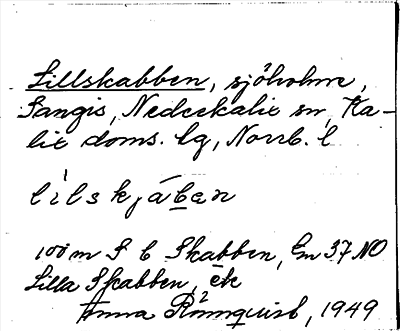 Lillskabben, sjöholme,
Sangis, Nederkalix sn, Ka-
lix doms. lg, Norrb. l
lilskjaben
100 m S b Skabben, Gm 37 NO
Lilla Skabben, ek
Anna Rönnquist, 1949